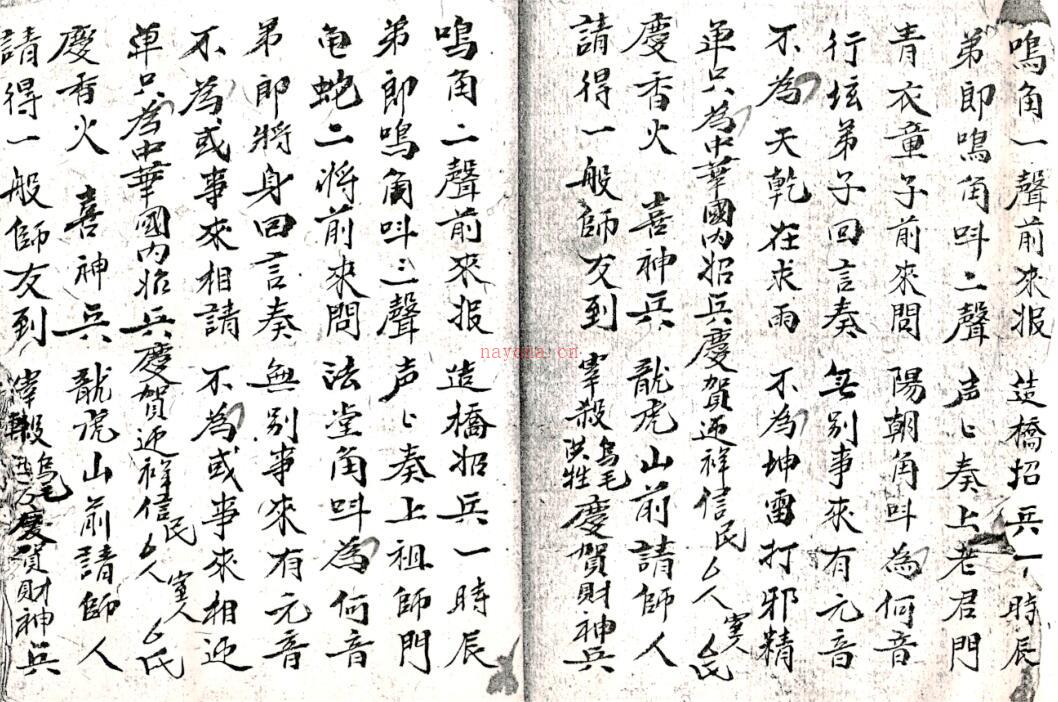 鳴角一聲前來报　造橋招兵一時辰
弟郎鳴角叫二聲　声々奏上老君門
青衣童子前來問　陽朝角叫為何音
行坛弟子回言奏　無别事來有元音
不為天乾在求雨　不為坤雷打邪精
单只為中華國内招兵慶賀迎祥信民厶人　室人　厶氏
慶香火　喜神兵　龍虎山前請師人
請得一般師友到　宰殺烏毛洪牲慶賀財神兵
鳴角二聲前來报　造橋招兵一時辰
弟郎鳴角叫三聲　声々奏上祖師門
龟蛇二将前來問　法堂角叫為何音
弟郎將身回言奏　無别事來有元音
不為或事來相請　不為或事來相迎
单只為中華國内招兵慶賀迎祥信民厶人　室人　厶氏
慶香火　喜神兵　龍虎山前請師人
請得一般師友到　宰殺烏毛慶賀財神兵
nayona.cn